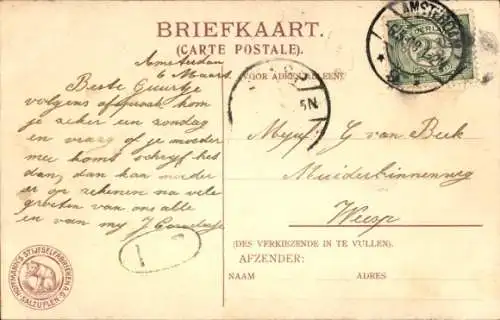 BRIEFKAART.
(CARTE POSTALE).
AMSTERDAM
Amsterdam
6 Maart.
Beste Guurtje
volgens afspraak kom
je zeker en zondag
en vraag of je moeder
mee komt schrijf het
dan, dan kan moeder
er op rekenen na vele
groeten van ons alle
en van mij J
VOOR ADRES ALLEEN.
5N
Mejuf G van Beek
Muiderbinnenweg
Weesp
1
(DES VERKIEZENDE IN TE VULLEN).
AFZENDER:
NAAM ADRES
HOFFMANN'S STIJFSELFABRIEKEN
SALZUFLEN